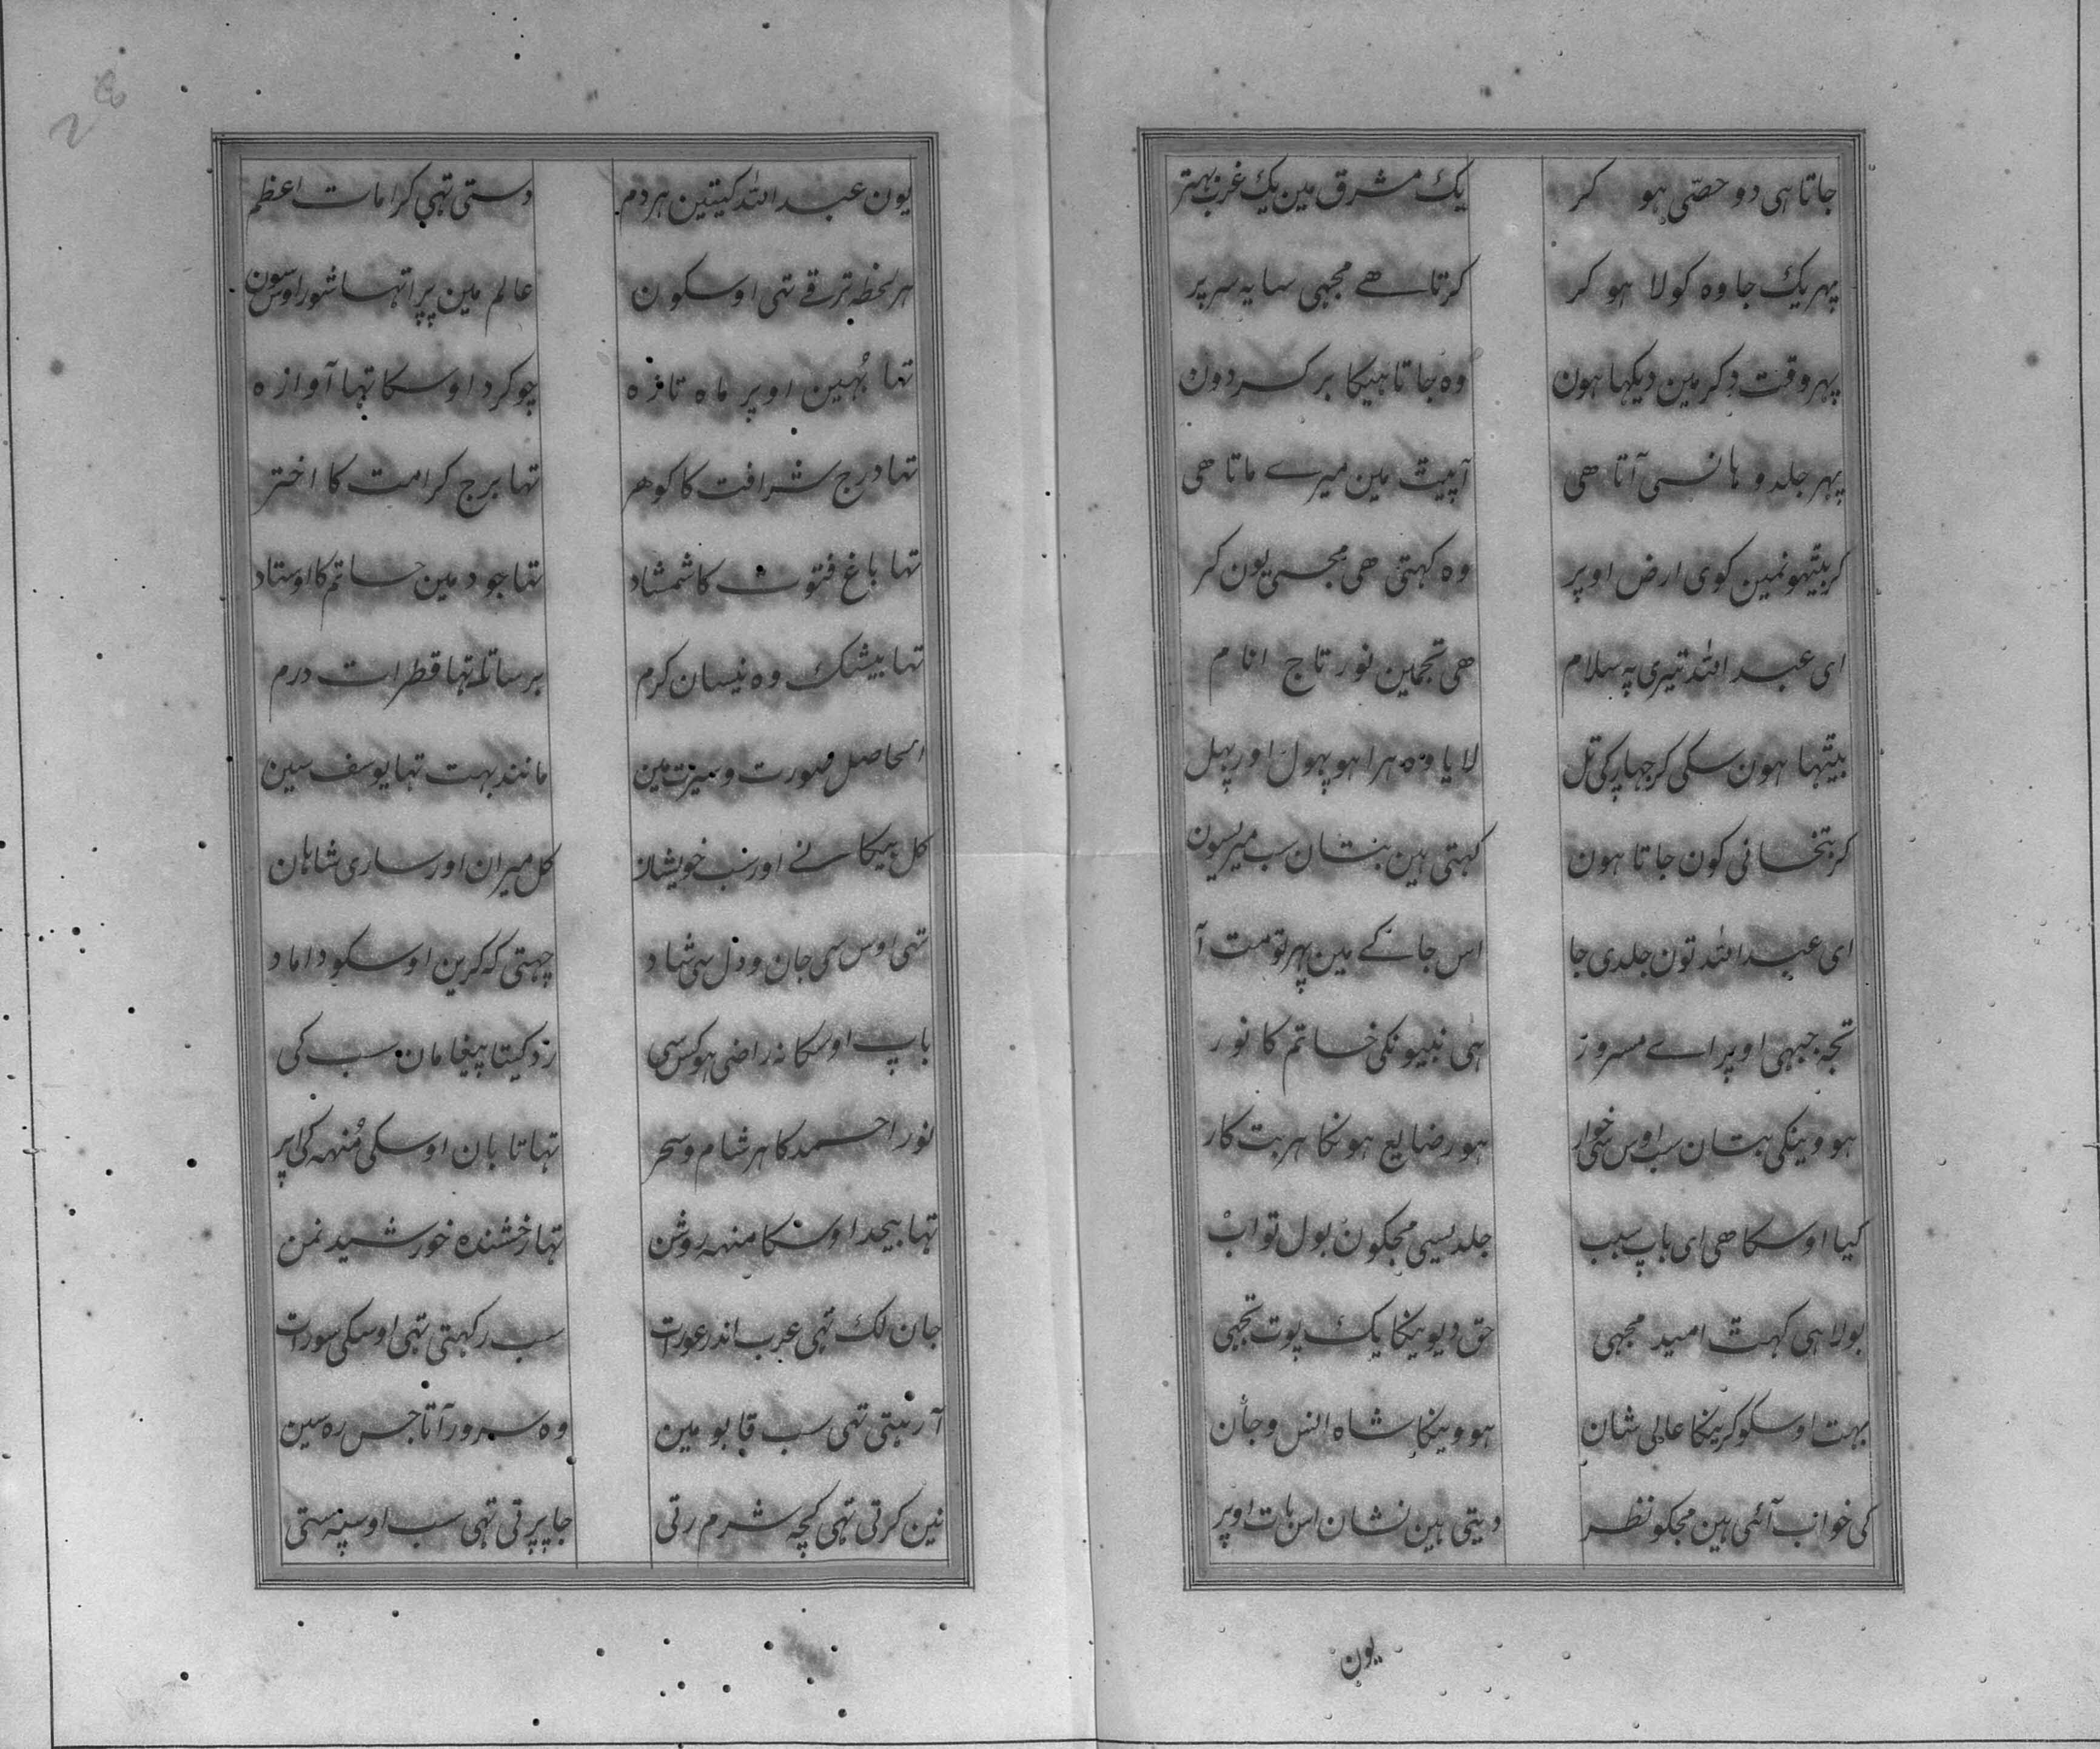 جاتا ہی دو حصّی ہو کر یک مشرق مین یک غرب بہتر
پہر یک جا وہ کولا ہو کر کرتا ھے مجہی سایہ سر پر
پہر وقت دکر مین دیکہا ہون وہ جاتا ہیکا بر کردون
پہر جلد وہانسی آتا ھی آ پیٹ مین میرے ماتا ھی
کر بیٹہو نمین کوی ارض اوپر وہ کہتی ھی مجسی یون کر
ای عبد اللہ تیری پہ سلام ھی تجمین نور تاج انام
بیٹہا ہون سکی کر جہار کی تل لایا وہ ہرا ہو پہول اور پہل
کر بتخانی کون جاتا ہون کہتی ہین بتان سب میریسون
ای عبد اللہ تون جلدی جا اس جاکے مین پہر تو مت آ
تجہ جبہی اوپر اے مسرور ہی نبیونکی خاتم کا نور
ہووینکی بتان سب اوس سی خوار ہور ضایع ہونکا ہر بت کار
کیا اوسکا ھی ای باپ سبب جلدیسی مجکون بول تو اب
بولا ہی کہت امید مجہی حق دیوینکا یک پوت تجہی
بہت اوسکو کرینکا عالی شان ہووینکا شاہ انس و جان
کی خواب آئی ہین مجکو نظر دیتی ہین نشان اس بات اوپر
یون
یون عبد اللہ کیتین ہر دم دستی تہی کرامات اعظم
ہر لحظہ ترقے تہی اوسکون عالم مین پر اتہا شور اوس سون
تہا بُہین اوپر ماہ تازہ چوکرد اوسکا تہا آوازہ
تہا درج شرافت کا کوہر تہا برج کرامت کا اختر
تہا باغ فتوت کا شمشاد تہا جود مین حاتم کا اوستاد
تہا بیشک وہ نیسان کرم برساتا تہا قطرات درم
الحاصل صورت و سیرت مین مانند بہت تہا یوسف سین
کل بیکانے اور سب خویشان کل میران اور ساری شاہان
تہی اوس سی جان و دل سی شاد چہتی کہ کرین اوسکو داماد
باپ اوسکا نہ راضی ہو کس سی رد کیتا پیغامان سب کی
نور احمد کا ہر شام و سحر تہا تابان اوسکی مُنہہ کی اپر
تہا بیحد اوسکا منہہ روشن تہا رخشندہ خورشید نمن
جان لک تہی عرب اندر عورات سب رکہتی تہی اوسکی سورات
آ رہتی تہی سب قابو مین وہ سرور آتا جس رہ سین
نین کرتی تہی کچہ شرم رتی جا پرتی تہی سب اوسپہ ستی